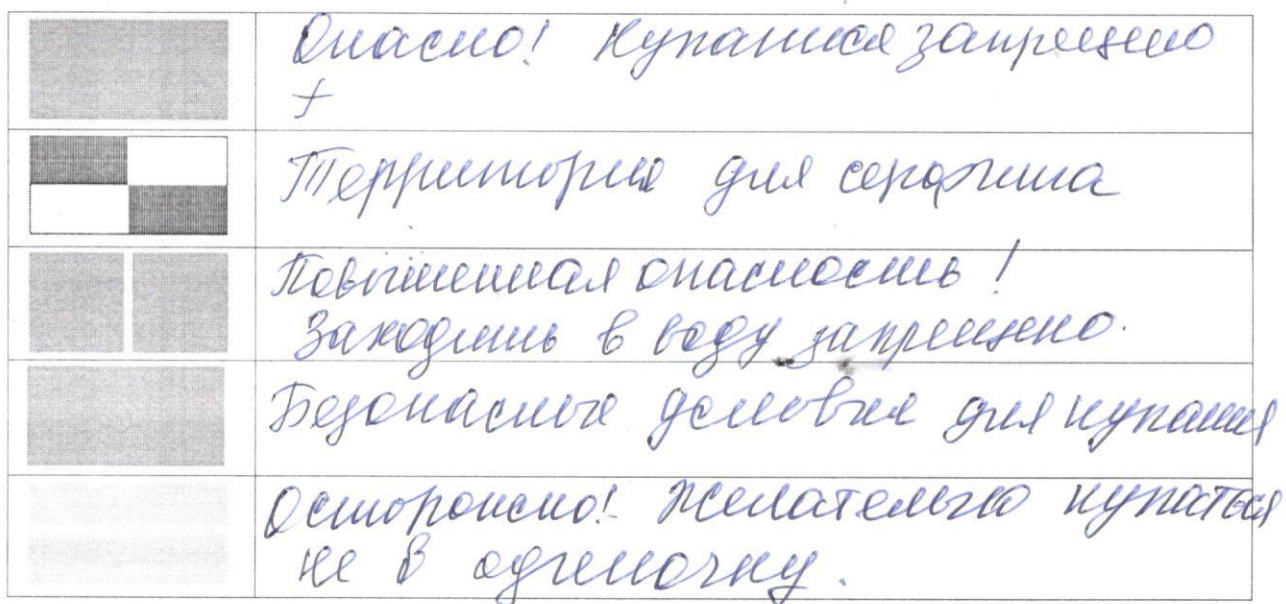 Опасно! Купаться запрещено
+
Территория для серфинга
Повышенная опасность!
Заходить в воду запрещено.
Безопасные условия для купания
Осторожно! Желательно купаться
не в одиночку.